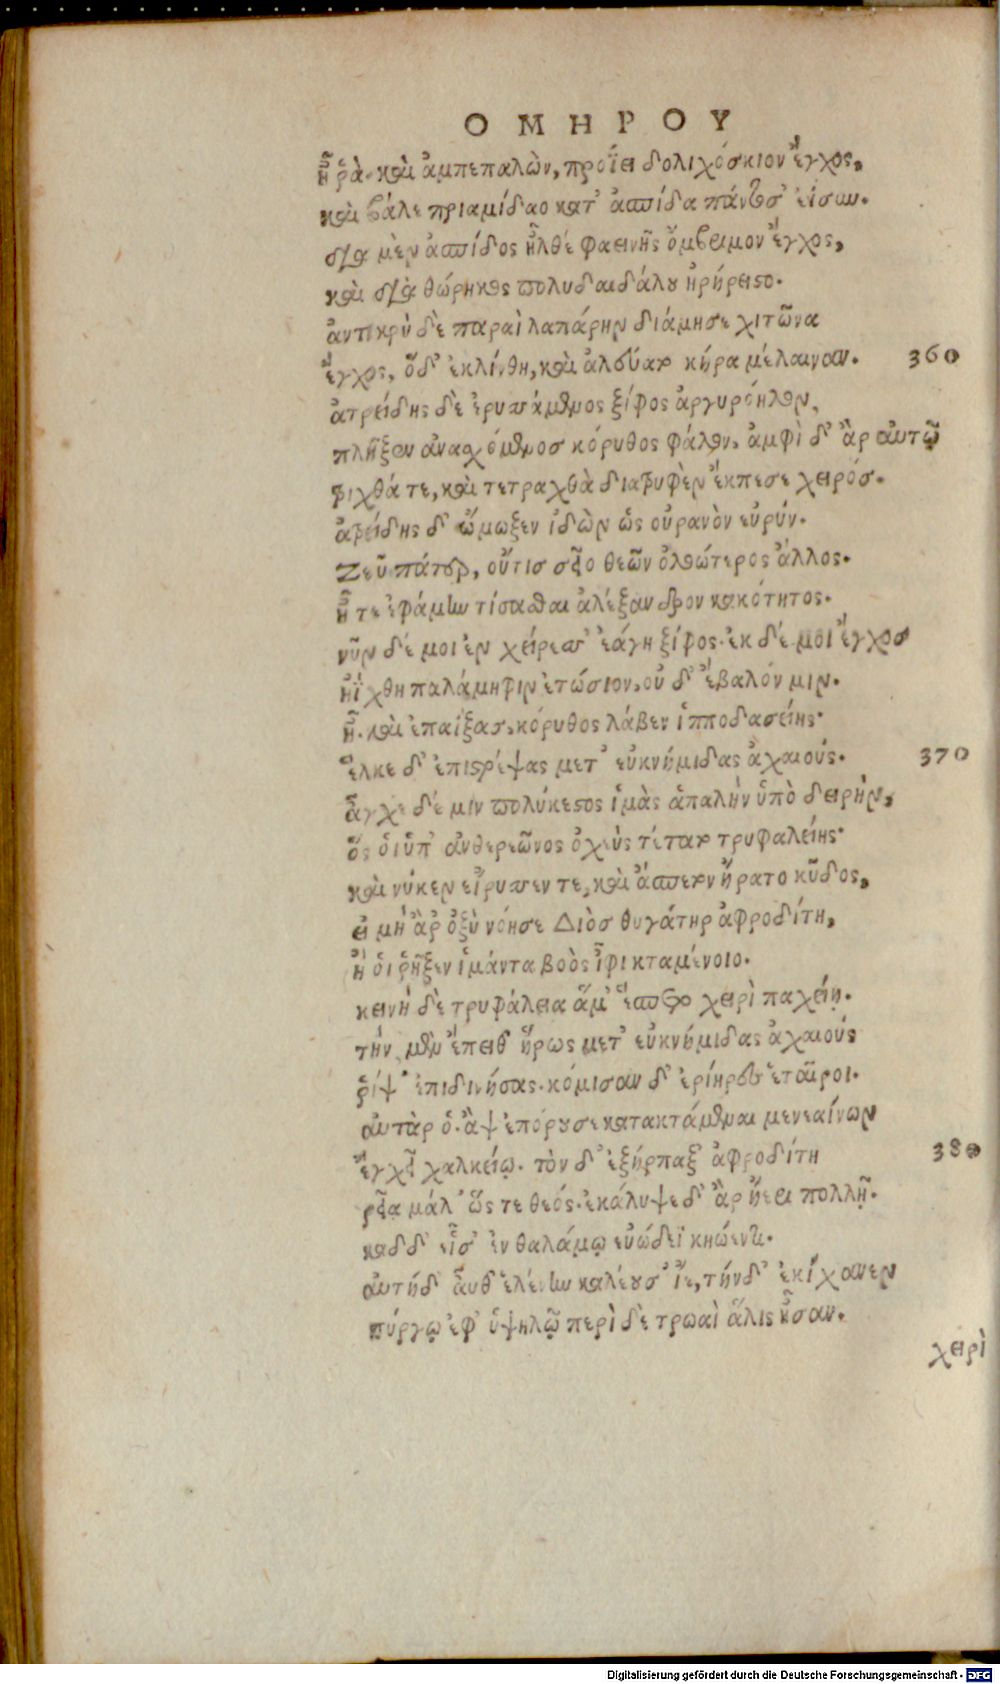 ΟΜΗΡΟΥ
ἦ ῥὰ. καὶ ἀμπεπαλὼν, προΐει δολιχόσκιον ἔγχος,
καὶ βάλε πριαμίδαο κατ' ἀσπίδα πάντοσ' ἐΐσην.
διὰ μὲν ἀσπίδος ἦλθέ φαεινῆς ὄμβριμον ἔγχος,
καὶ διὰ θώρηκος πολυδαιδάλου ἠρήρειστο.
ἀντικρὺ δὲ παραὶ λαπάρην διάμησε χιτῶνα
ἔγχος, ὅδ' ἐκλίνθη, καὶ ἀλεύατο κήρα μέλαιναν. 360
ἀτρείδης δὲ ἐρυσσάμενος ξίφος ἀργυρόηλον,
πλῆξεν ἀνασχόμενοσ κόρυθος φάλον, ἀμφὶ δ' ἂρ αὐτῷ
τριχθά τε, καὶ τετραχθὰ διατρυφὲν ἔκπεσε χειρός.
ἀτρείδης δ' ᾤμωξεν ἰδὼν εἰς οὐρανὸν εὐρύν.
Ζεῦ πάτερ, οὔτισ σεῖο θεῶν ὀλοώτερος ἄλλος.
ἦ τε ἐφάμην τίσασθαι ἀλέξανδρον κακότητος.
νῦν δέ μοι ἐν χείρεσσ' ἐάγη ξίφος. ἐκ δέ μοι ἔγχοσ
ἠΐχθη παλάμηφιν ἐτώσιον, οὐ δ' ἔβαλόν μιν.
ἦ. καὶ ἐπαΐξασ, κόρυθος λάβεν ἱπποδασείης·
ἕλκε δ' ἐπιστρέψας μετ' εὐκνήμιδας ἀχαιούς. 370
ἄγχε δέ μιν πολύκεστος ἱμὰς ἁπαλὴν ὑπὸ δειρὴν,
ὅς ὁι ὑπ' ἀνθερεῶνος ὀχεὺς τέτατο τρυφαλείης·
καὶ νύκεν εἴρυσσεν τε, καὶ ἄσπετον ἤρατο κῦδος,
εἰ μὴ ἂρ ὀξὺ νόησε Διὸσ θυγάτηρ ἀφροδίτη,
ἥ ὁι ῥῆξεν ἱμάντα βοὸς ἶφι κταμένοιο.
κεινὴ δὲ τρυφάλεια ἅμ' ἕσπετο χειρὶ παχείῃ.
τὴν μὲν ἔπειθ' ἥρως μετ' εὐκνήμιδας ἀχαιούς
ῥίψ' ἐπιδινήσας. κόμισαν δ' ἐρίηρες ἑταῖροι.
αὐτὰρ ὁ. ἂψ ἐπόρουσε κατακτάμεναι μενεαίνων
ἔγχεϊ χαλκείῳ. τὸν δ' ἐξήρπαξ' ἀφροδίτη 380
ῥεῖα μάλ' ὥς τε θεός. ἐκάλυψε δ' ἂρ ἠέρι πολλῇ.
καδ δ' εἷσ' ἐν θαλάμῳ εὐώδεϊ κηώεντι.
αὐτὴδ' αὖθ' ἑλένην καλέουσ' ἴε, τήνδ' ἐκίχανεν
πύργῳ ἐφ' ὑψηλῷ περὶ δὲ τρωαὶ ἅλις ἦσαν.
χειρὶ
Digitalisierung gefördert durch die Deutsche Forschungsgemeinschaft - DFG